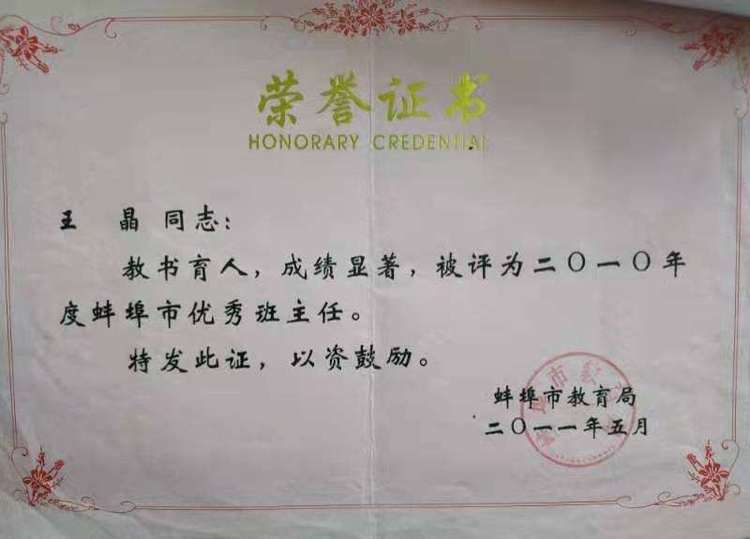 荣誉证书
HONORARY CREDENTIAL
王 晶 同志：
教书育人，成绩显著，被评为二〇一〇年
度蚌埠市优秀班主任。
特发此证，以资鼓励。
蚌埠市教育局
二〇一一年五月